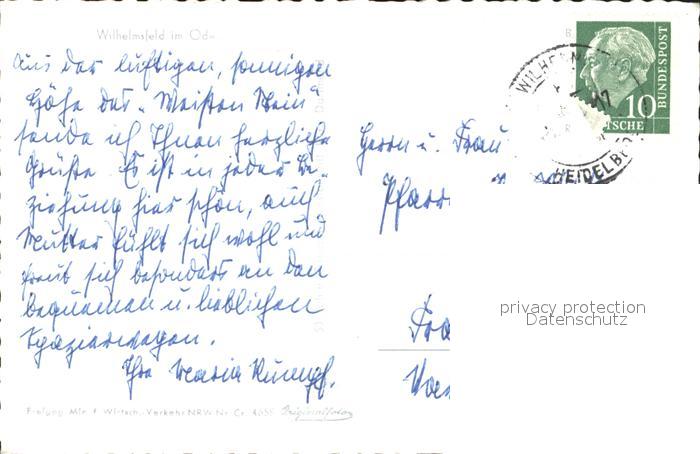 Wilhelmsfeld im Od-
Aus der luftigen, sonnigen
Höhe des „Weißen Stein"
sende ich Ihnen herzliche
Grüße. Es ist in jeder Be-
ziehung hier schön, auch
Mutter fühlt sich wohl und
freut sich besonders an den
bequemen u. lieblichen
Spazierwegen.
Ihre Maria Kumpf.
Herrn u. Frau
Pfarr
Fra
WILHELMS
HEIDELB
10
BUNDESPOST
TSCHE
privacy protection
Datenschutz
Freigung Min. f. Wirtsch. Verkehr NRW Nr. Cr. 4655 Originalfoto